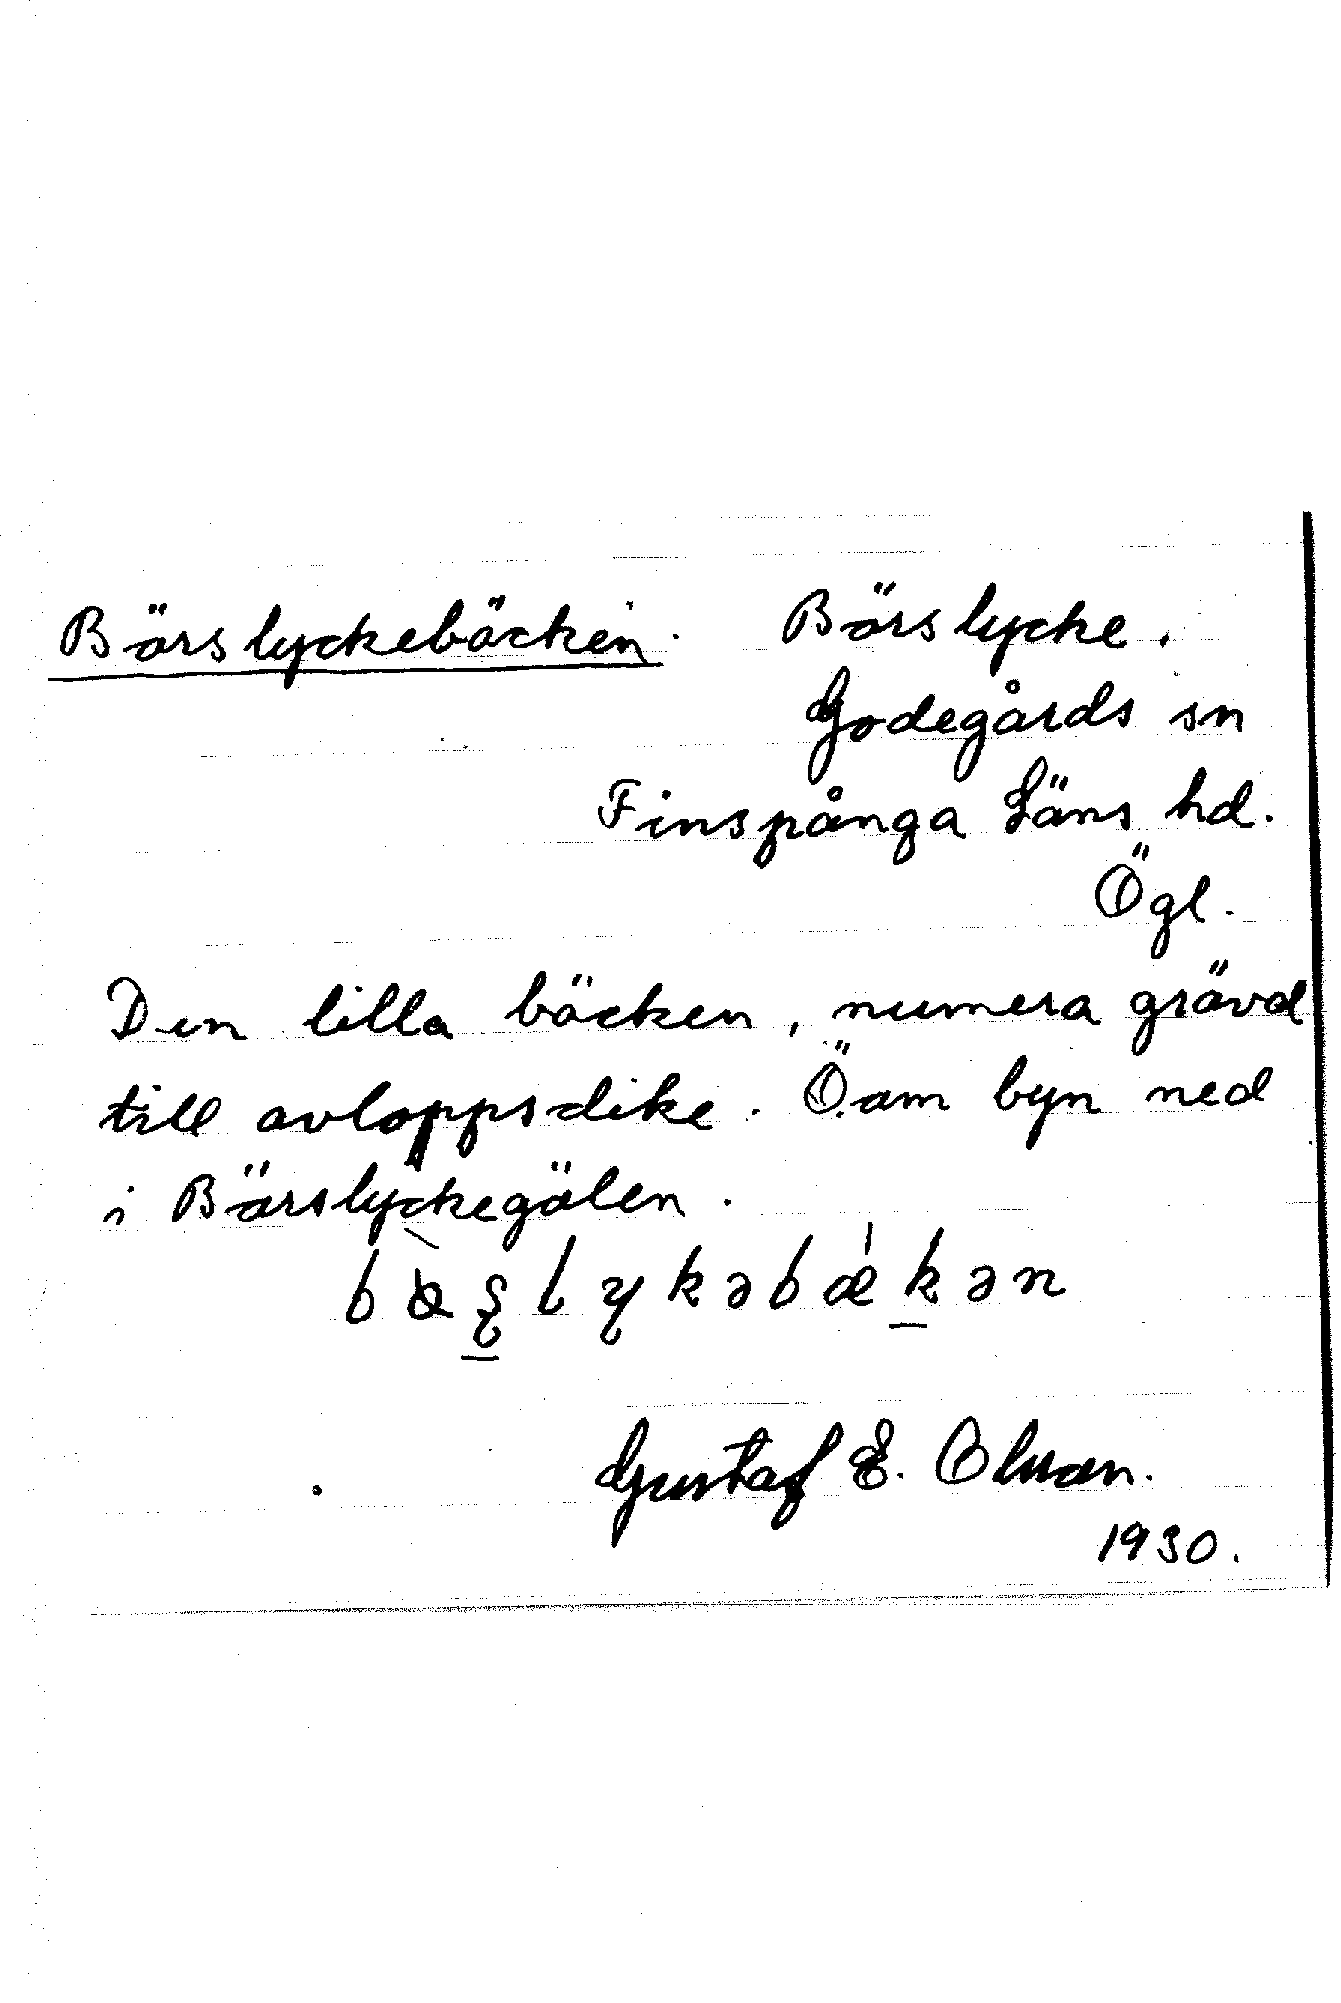 Börslyckebäcken. Börslycke.
Godegårds sn
Finspånga Läns hd.
Ögl.
Den lilla bäcken, numera grävd
till avloppsdike. Ö.om byn ned
i Börslyckegölen.
lykəbækən
Gustaf E. Olsson.
1930.